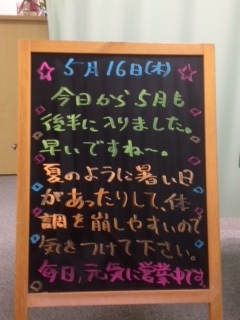 5月16日(木)
今日から5月も
後半に入りました。
早いですね〜。
夏のように暑い日
があったりして、体
調を崩しやすいので
気をつけて下さい。
毎日、元気に営業中です。